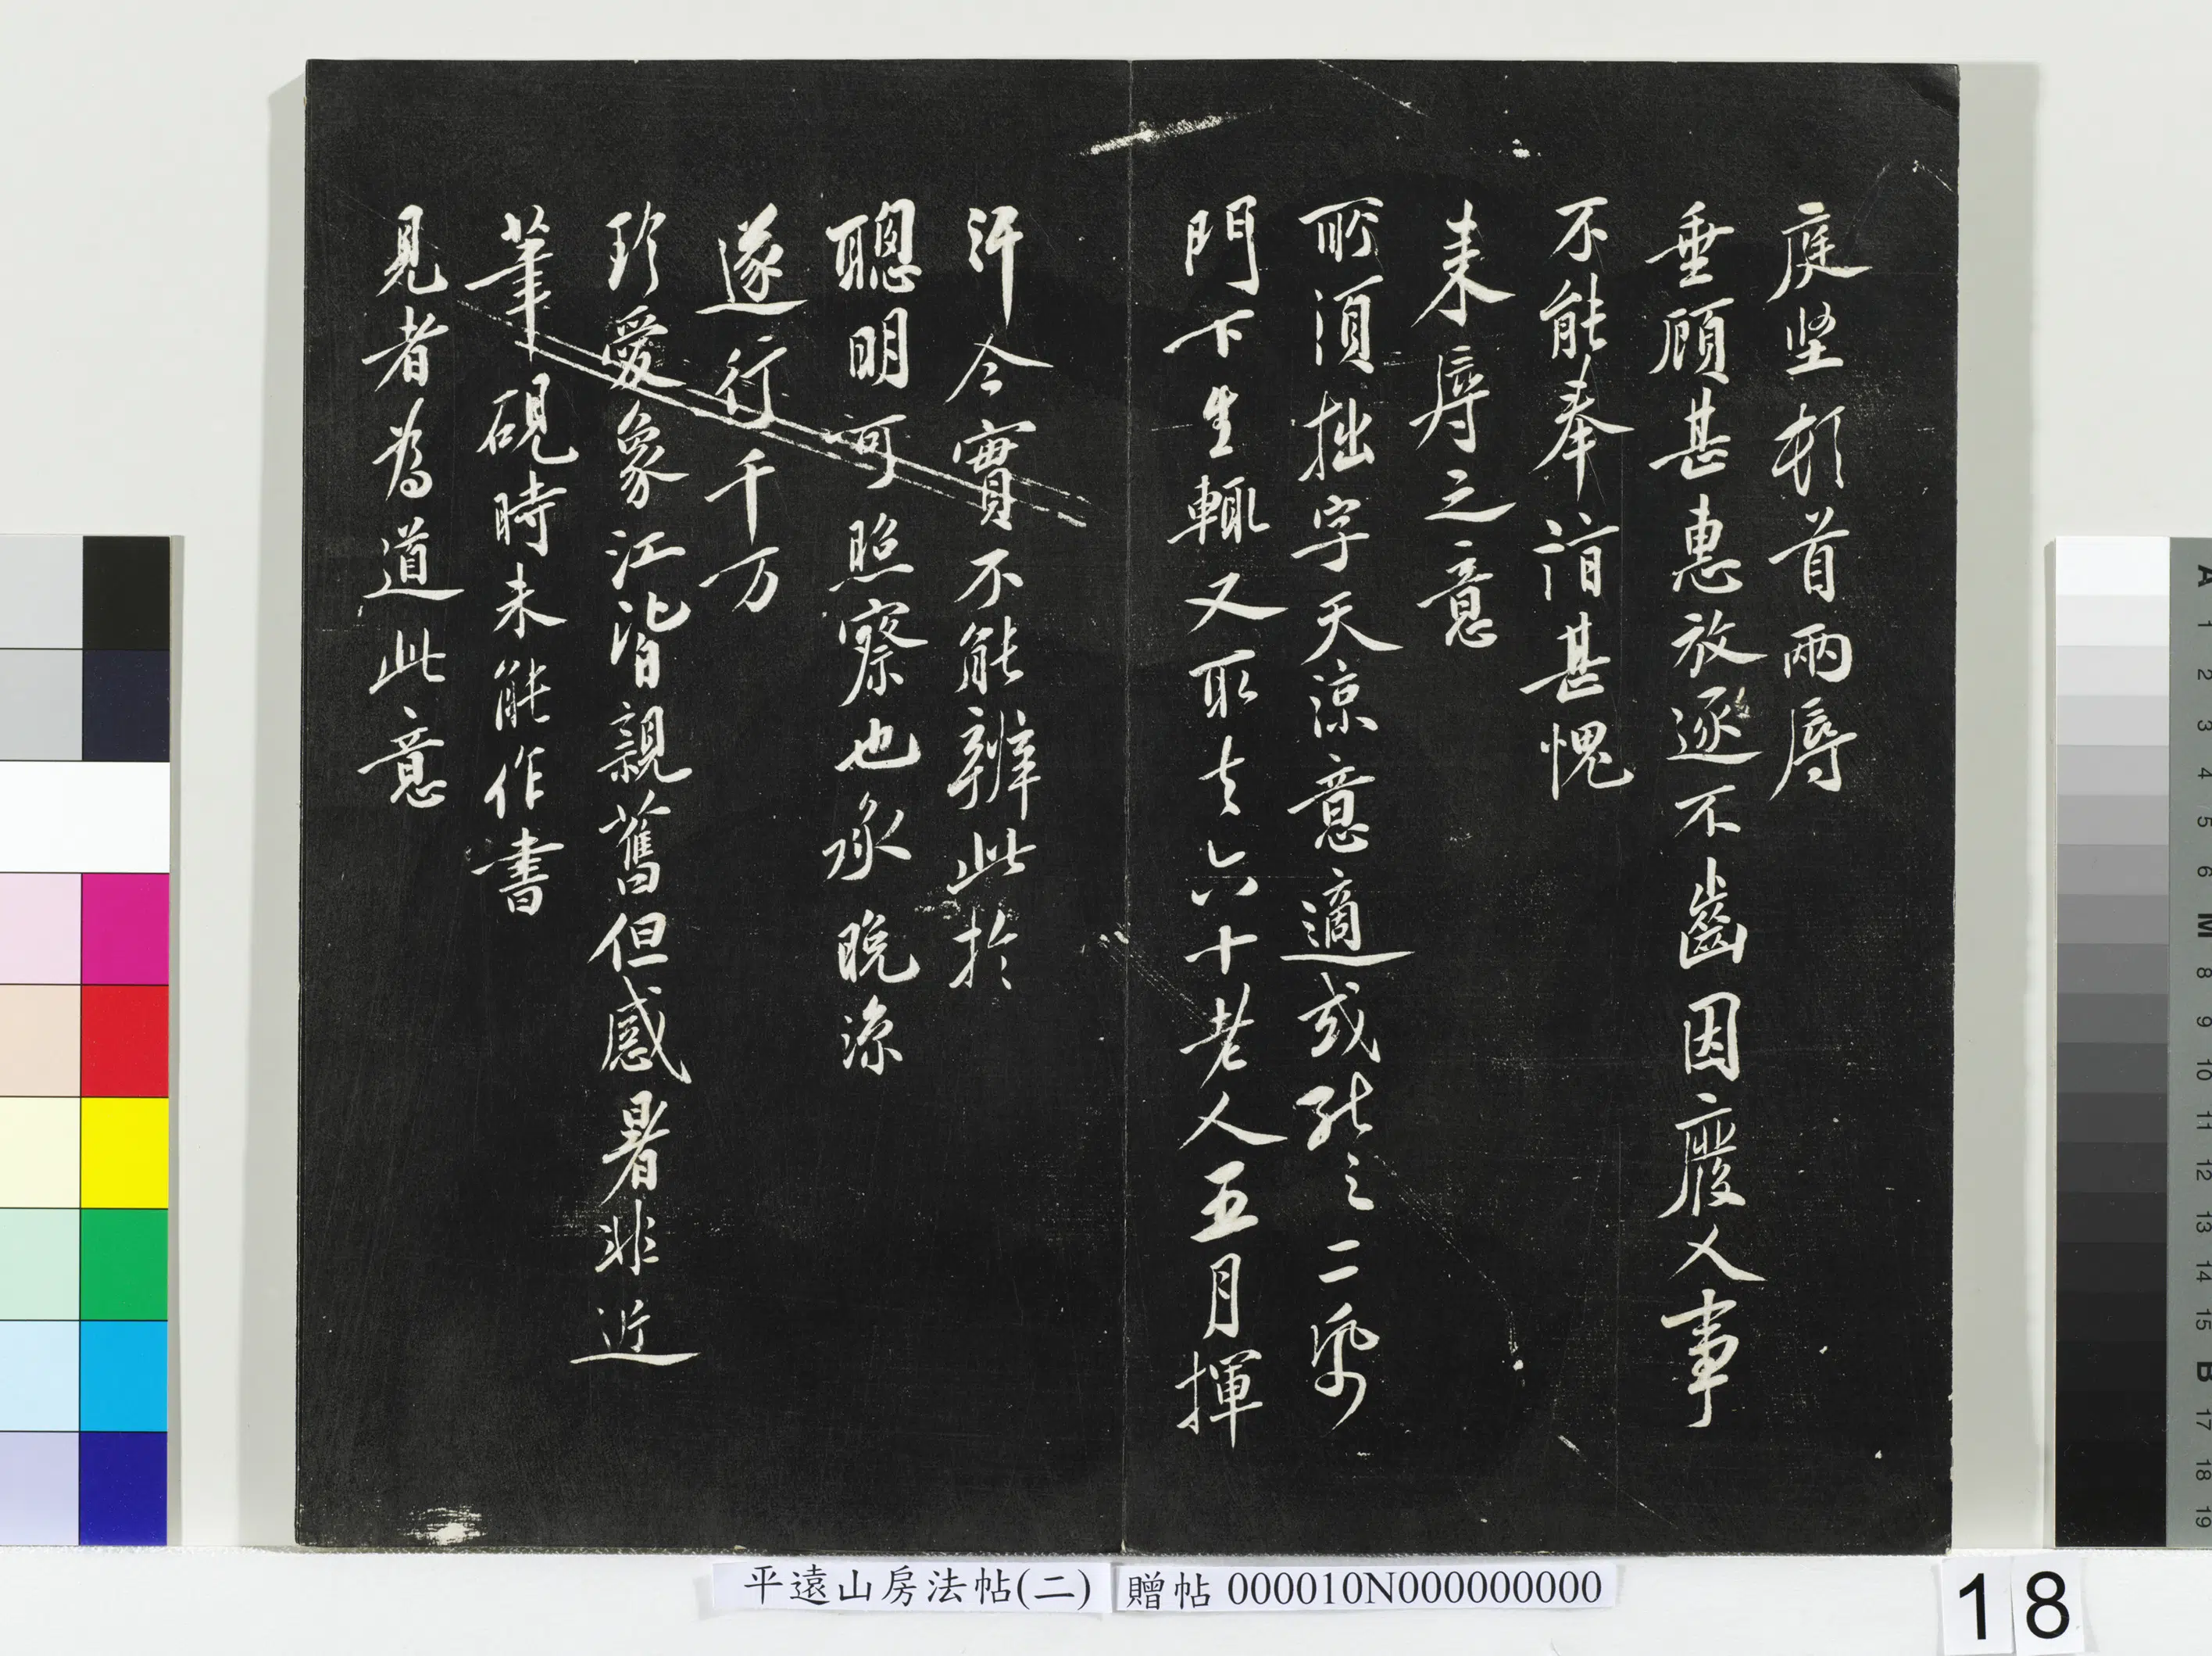 庭堅頓首兩辱
垂顧甚惠放逐不齒因廢人事
不能奉詣甚愧
来辱之意
所須拙字天涼意適或能三二紙
門下生輒又取去六十老人五月揮
汗今實不能辦此於
聰明可照察也承晚涼
遂行千万
珍愛象江皆親舊但感暑非近
筆硯時未能作書
見者為道此意
平遠山房法帖(二)
贈帖 000010N000000000
18
A 1 2 3 4 5 6 M 8 9 10 11 12 13 14 15 B 17 18 19